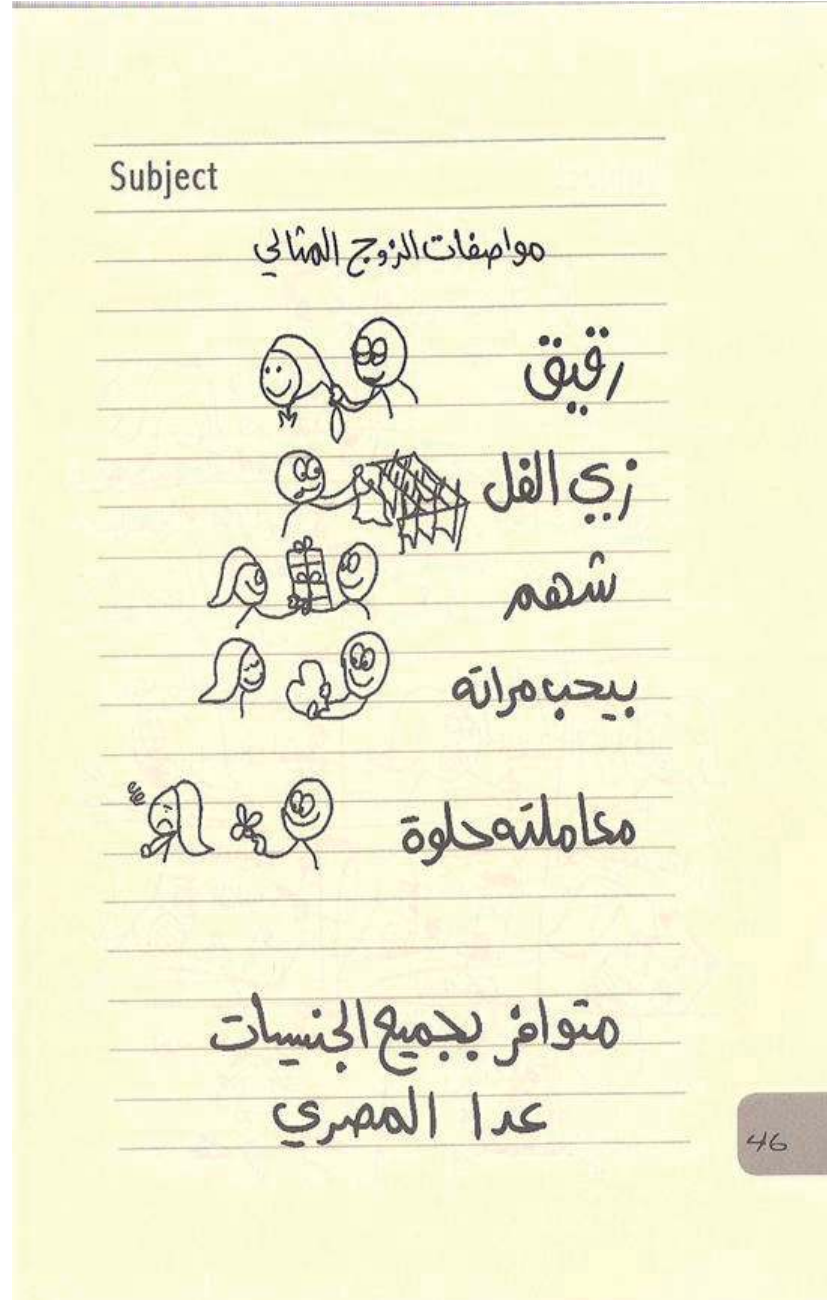 Subject
مواصفات الزوج المثالي
رقيق
زي الفل
شهم
بيحب مراته
معاملته حلوة
متوافر بجميع الجنسيات
عدا المصري
46